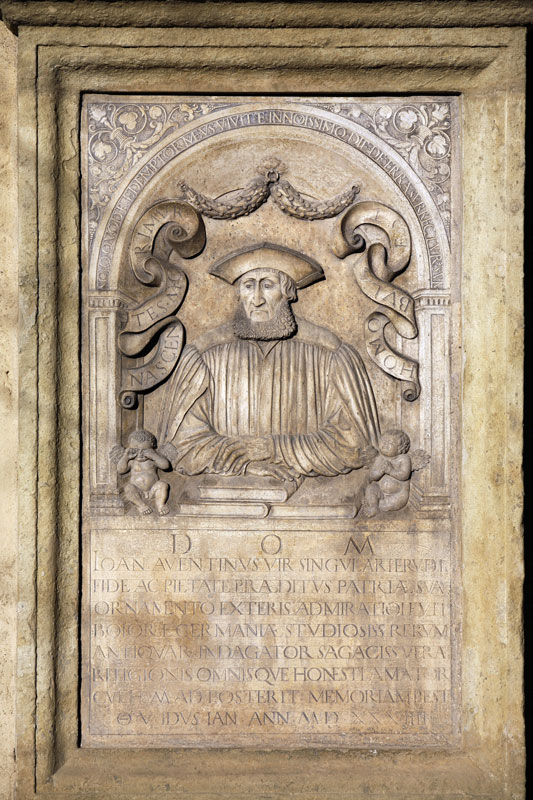 SCIO QVOD REDEMPTOR MEVS VIVIT ET IN NOVISSIMO DIE DE TERRA
HOMO BVLLA
NASCENTES MORIMVR
D O M
IOAN AVENTINVS VIR SINGVLARI ERVDIT
FIDE AC PIETATE PRÆDITVS PATRIÆ SVÆ
ORNAMENTO EXTERIS ADMIRATIOI FVIT
BOIOR ET GERMANIÆ STVDIOSISS RERVM
ANTIQVAR INDAGATOR SAGACISS VERÆ
RELIGIONIS OMNISQVE HONESTI AMATOR
CVI H M AD POSTERIT MEMORIAM P EST
O V IDVS IAN ANN M D XXXIIII